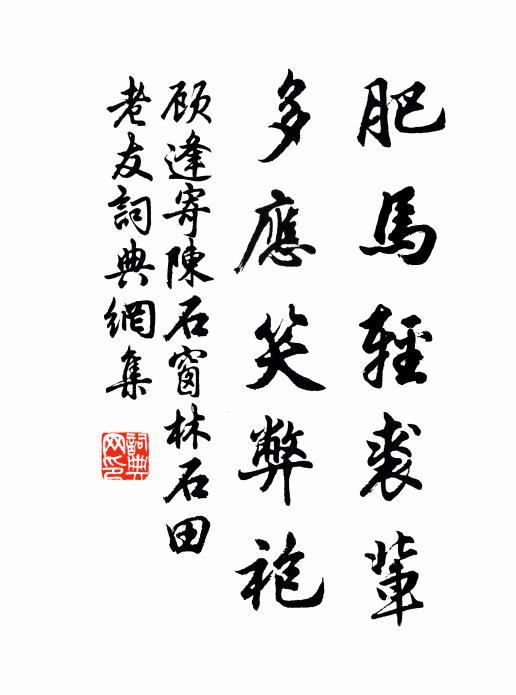 肥馬輕裘輩
多應笑弊袍
顾逢寄陳石窗林石田
老友詞典網集
詞典網印